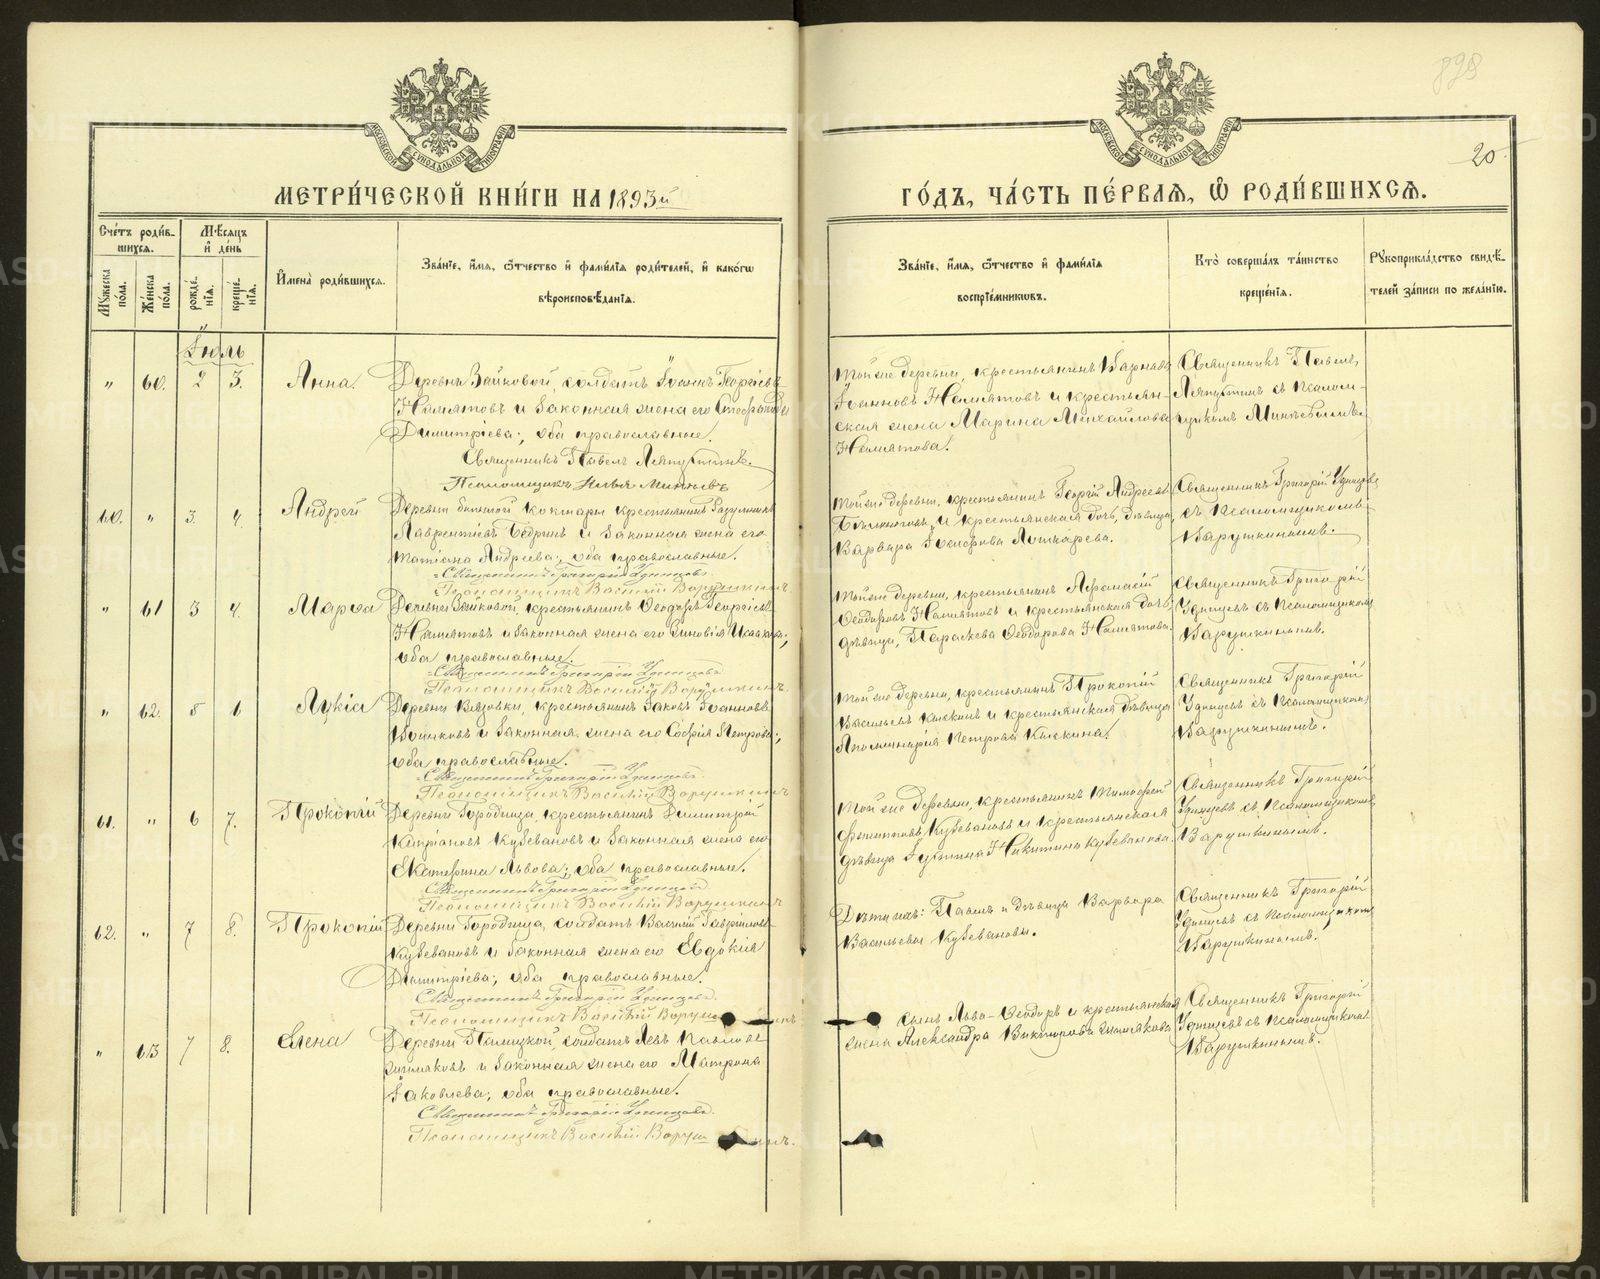 898
20.
МЕТРИЧЕСКОЙ КНИГИ НА 1893й
ГОДЪ, ЧАСТЬ ПЕРВАЯ, Ѡ РОДИВШИХСЯ.
Счетъ родив-
шихся.
Мѣсяцъ
и день
Мужеска
пола.
Женска
пола.
рожде-
нія.
креще-
нія.
Имена родившихся.
Званіе, имя, ѿчество и фамилія родителей, и какогѡ
вѣроисповѣданія.
Званіе, имя, ѿчество и фамилія
воспріемникѡвъ.
Кто совершалъ таинство
крещенія.
Рукоприкладство свидѣ-
телей записи по желанію.
Іюль
" 60. 2 3. Анна.
Деревни Зайковой, солдатъ Іоаннъ Георгіевъ
Намятовъ и законная жена его
Димитріева; оба православные.
Священникъ Павелъ Ляпустинъ.
Псаломщикъ Илья
Той же деревни, крестьянинъ
Іоанновъ Намятовъ и крестьян-
ская жена Марина Михайлова
Намятова.
Священникъ Павелъ
Ляпустинъ съ псалом-
щикомъ
60. " 3. 4. Андрей
Деревни большой крестьянинъ
Лаврентіевъ и законная жена его
Татіана Андреева; оба православные.
Священникъ Григорій Удинцовъ.
Псаломщикъ Василій Варушкинъ
Той же деревни, крестьянинъ Георгій Андреевъ
и крестьянская дочь, дѣвица
Варвара
Священникъ Григорій Удинцевъ
съ псаломщикомъ
Варушкинымъ.
" 61 3 4. Марѳа
Деревни Зайковой, крестьянинъ Ѳеодоръ Георгіевъ
Намятовъ и законная жена его
оба православные.
Священникъ Григорій Удинцовъ
Псаломщикъ Василій Варушкинъ.
Той же деревни, крестьянинъ Аѳанасій
Ѳеодоровъ Намятовъ и крестьянская дочь,
дѣвица, Параскева Ѳеодорова Намятова.
Священникъ Григорій
Удинцевъ съ псаломщикомъ
Варушкинымъ.
" 62. 5 6 Лукія
Деревни Вязовки, крестьянинъ Іаковъ Іоанновъ
и законная жена его Софія Петрова;
оба православные.
Священникъ Григорій Удинцовъ.
Псаломщикъ Василій Варушкинъ
Той же деревни, крестьянинъ Прокопій
Васильевъ и крестьянская дѣвица
Аполлинарія Петрова
Священникъ Григорій
Удинцевъ съ псаломщикомъ
Варушкинымъ.
61. " 6 7. Прокопій
Деревни Городища, крестьянинъ Димитрій
Кипріановъ Кубевановъ и законная жена его
Екатерина Львова; оба православные.
Священникъ Григорій Удинцовъ
Псаломщикъ Василій Варушкинъ
Той же деревни, крестьянинъ Тимоѳей
Филипповъ Кубевановъ и крестьянская
дѣвица Никитина Кубеванова.
Священникъ Григорій
Удинцевъ съ псаломщикомъ
Варушкинымъ.
62. " 7 8. Прокопій
Деревни Городища, солдатъ Василій Гавриловъ
Кубевановъ и законная жена его Евдокія
Димитріева; оба православные.
Священникъ Григорій Удинцовъ.
Псаломщикъ Василій Варушкинъ
Дѣти ихъ: Павелъ и дѣвица Варвара
Васильевы Кубевановы.
Священникъ Григорій
Удинцевъ съ псаломщикомъ
Варушкинымъ.
" 63 7 8. Елена
Деревни солдатъ Левъ Павловъ
и законная жена его Матрона
Іаковлева; оба православные.
Священникъ Григорій Удинцовъ.
Псаломщикъ Василій Варушкинъ.
сынъ Льва - Ѳеодоръ и крестьянская
жена Александра Викторова
Священникъ Григорій
Удинцевъ съ псаломщикомъ
Варушкинымъ.
METRIKI.GASO-URAL.RU